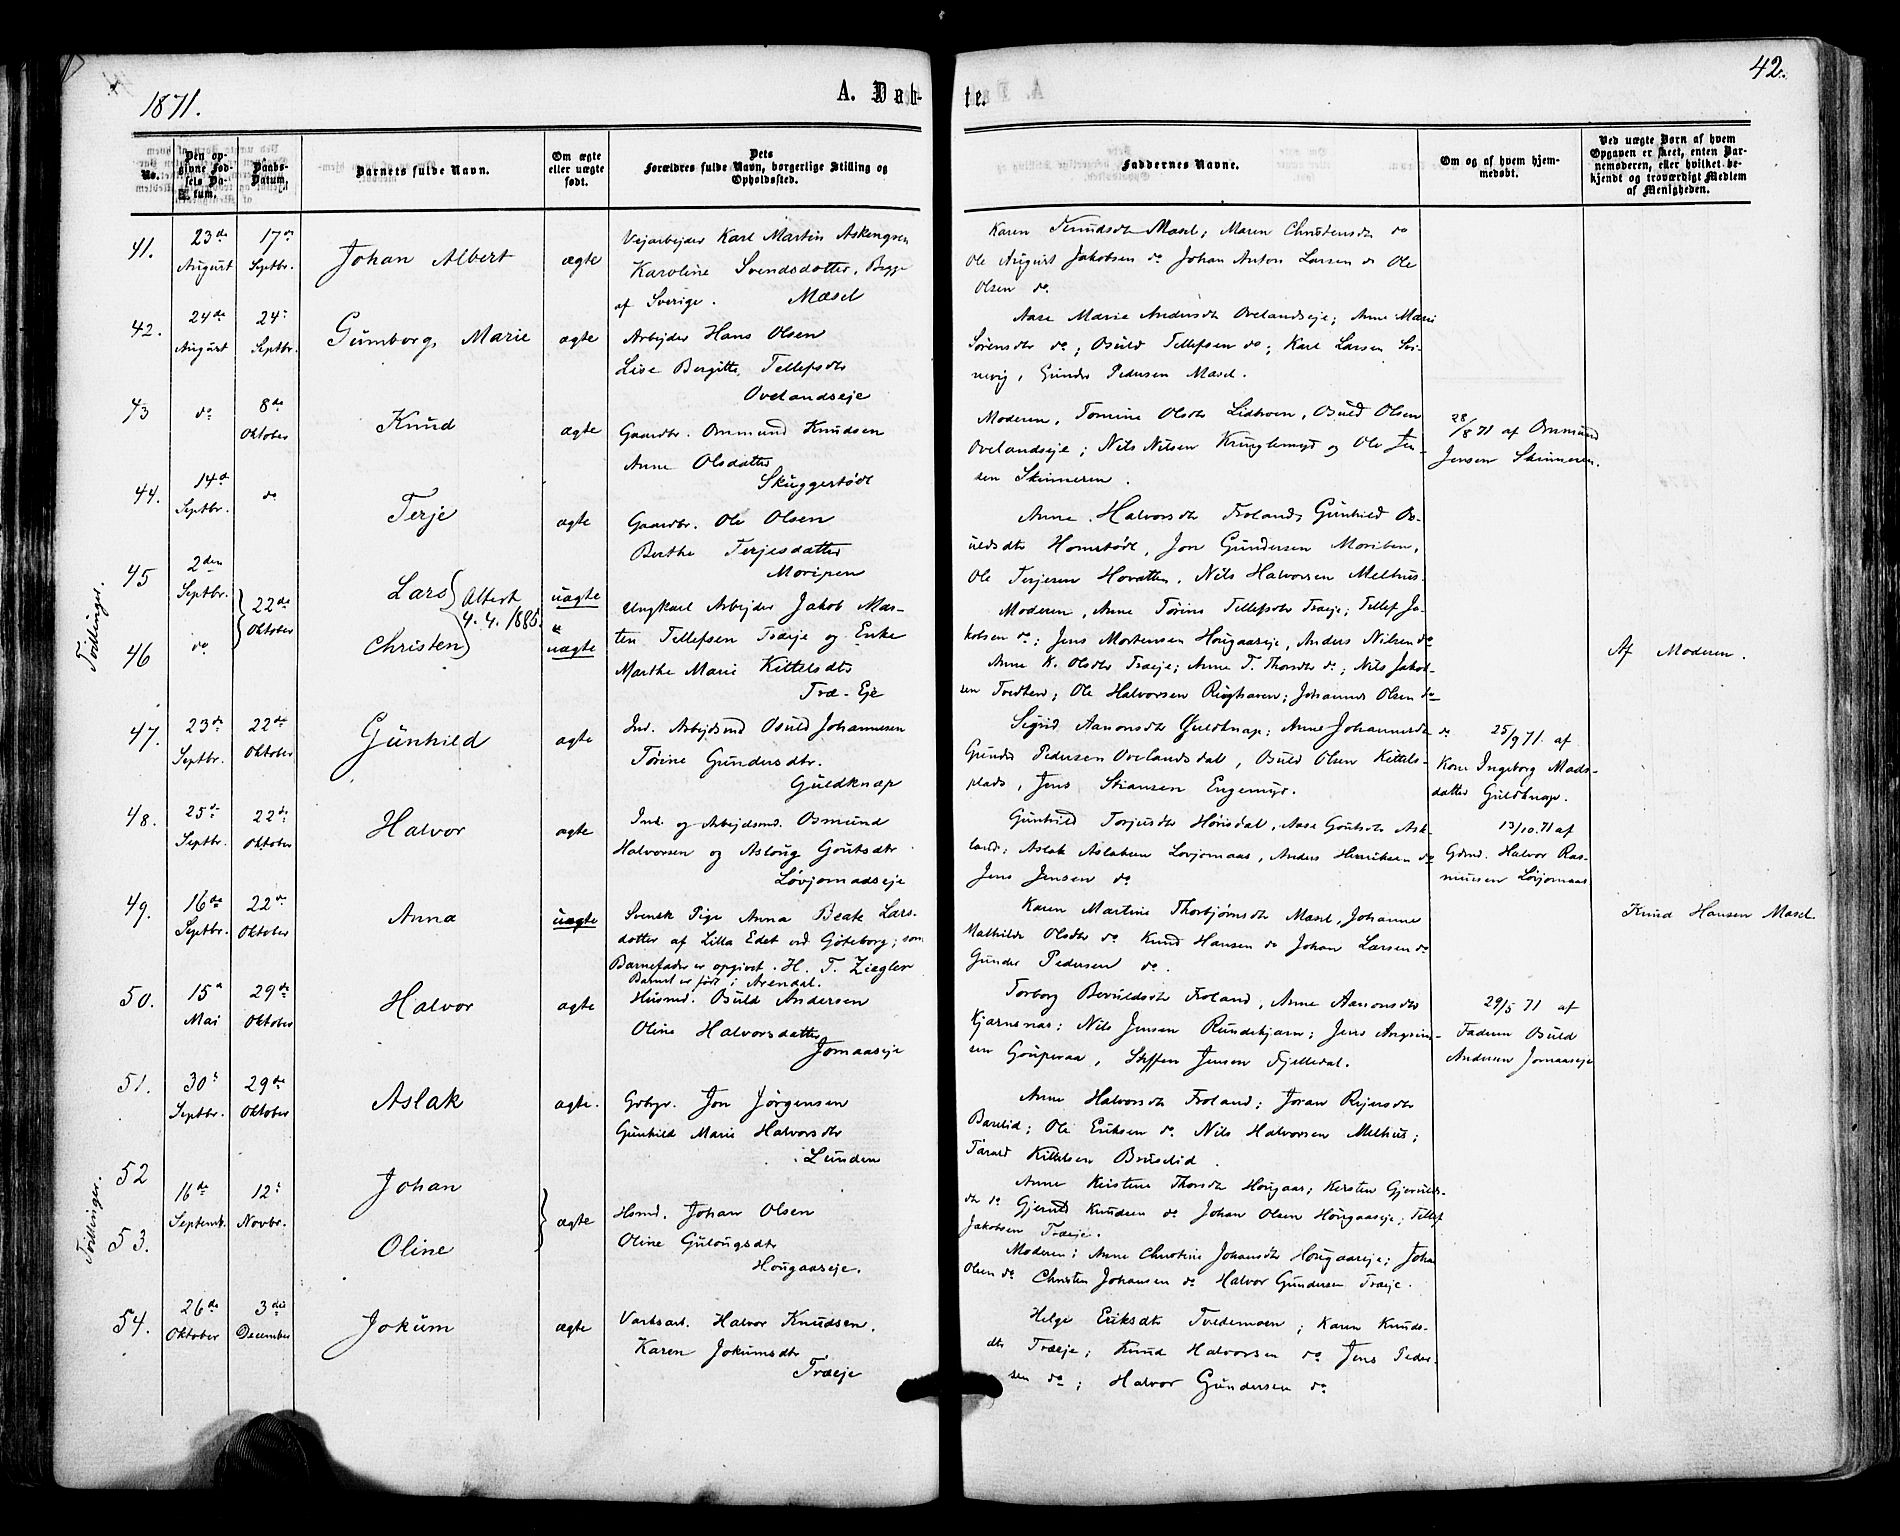 1871.
A. Døb-
te.
42.
No.
Den opgivne Fødsels Datum.
Daabs-Datum.
Barnets fulde Navn.
Om ægte eller uægte født.
Dets Forældres fulde Navn, borgerlige Stilling og Opholdssted.
Faddernes Navne.
Om og af hvem hjemmedøbt.
Ved uægte Børn af hvem Opgaven er skeet, enten Barnemoderen, eller hvilket bekjendt og troværdigt Medlem af Menigheden.
41.
23de August
17de Septbr.
Johan Albert
ægte
Vejarbejder Karl Martin Askengren
Karoline Svendsdatter, Begge
af Sverige. Mæsel
Karen Knudsdtr Mæsel; Maren Christensdtr do
Ole August Jakobsen do Johan Anton Larsen do Ole
Olsen do
42.
24de August
24: Septbr.
Gunborg Marie
ægte
Arbejder Hans Olsen
Lise Bergitte Tellefsdtr
Ovelandseje
Aase Marie Andersdtr Ovelandseje; Anne Marie
Sørensdtr do; Osuld Tellefsen do; Karl Larsen
Gunder Pedersen Mæsel.
43
do
8de Oktober
Knud
ægte
Gaardbr. Ommund Knudsen
Anne Olsdatter
Skuggestødt
Moderen, Tomine Olsdtr Lidtveen, Osuld Olsen
Ovelandseje; Nils Nilsen Kruglemyr og Ole Jen-
sen Skinneren.
28/8 71 af Ommund
Jensen Skinneren.
44.
14d Septbr.
do
Terje
ægte
Gaardbr. Ole Olsen
Berthe Terjesdatter
Moripen
Anne Halvorsdtr Froland; Gunhild Os-
uldsdtr Homstødt, Jon Gundersen Moriben,
Ole Terjesen Hovatten, Nils Halvorsen Melhus.
Tvillinger.
45
2den Septbr.
22de Oktober
Lars
Albert
4. 4. 1885.
uægte
46
do
Christen
uægte
Ungkarl Arbejder Jakob Mar-
ten Tellefsen Træeje og Enke
Marthe Marie Kittelsdtr
Træ-Eje
Moderen, Anne Torine Tellefsdtr Træeje; Tellef Ja-
kobsen do; Jens Mortensen Hougaaseje, Anders Nilsen do
Anne K. Olsdtr Træeje; Anne T. Thorsdtr do; Nils Jakob-
sen Tvedten; Ole Halvorsen Ringhaven; Johannes Olsen do
Af Moderen.
47.
23de Septbr.
22de Oktober
Gunhild
ægte
Ind. Arbejdsmd Osuld Johannesen
Torine Gundersdtr.
Guldknap
Sigrid Aanonsdtr Guldknap; Anne Johannesdtr do
Gunder Pedersen Ovelandsdal, Osuld Olsen Kittels-
plads, Jens Stiansen Engemyr.
25/9 71. af
Kone Ingeborg Mads-
datter Guldknap.
48.
25de Septbr.
22de Oktober
Halvor
ægte
Ind. og Arbejdsmd. Osmund
Halvorsen og Asloug Goutsdtr
Løvjomaaseje
Gunhild Torjusdtr Hørisdal, Aase Goutsdtr Ask-
land; Aslak Aslaksen Løvjomaas, Anders Henriksen do
Jens Jensen do
13/10. 71 af
Gdmd. Halvor Ras-
mussen Løvjomaas
49.
16de Septbr.
22de Oktober
Anna
uægte
Svensk Pige Anna Beate Lars-
dotter af Lilla Edet ved Göteborg; som
Barnefader er opgivet H. T. Ziegler
Barnet er født i Arendal.
Karen Martine Thorbjørnsdtr Mæsel, Johanne
Mathilde Olsdtr do Knud Hansen do Johan Larsen do
Gunder Pedersen do.
Knud Hansen Mæsel
50.
15d Mai
29de Oktober
Halvor
ægte
Husmd. Osuld Andersen
Oline Halvorsdatter
Jomaaseje
Torborg Osuldsdtr Froland, Anne Aanonsdtr
Kjærnenæs; Nils Jensen Rundekjærn; Jens
Steffen Jensen Fjelledal.
29/5 71 af
Faderen Osuld
Andersen Jomaaseje
51.
30: Septbr.
29de Oktober
Aslak
ægte.
Gdbgr. Jon Jörgensen
Gunhild Marie Halvorsdtr
Lunden
Anne Halvorsdtr Froland; Joran
Ole Eriksen do. Nils Halvorsen Melhus;
Tarald Kittelsen Bruselid.
Tvillinger.
52
16de Septemb.
12: Novbr.
Johan
53.
Oline
ægte
Hsmd. Johan Olsen
Oline Gulougsdtr
Hougaaseje.
Anne Kirstine Thorsdtr Hougaas; Kersten Gjeruld-
dtr do Gjeruld Knudsen do Johan Olsen Hougaaseje, Tellef
Jakobsen Træeje.
Moderen; Anne Christine Johansdtr Hougaaseje; Johan
Olsen do Christen Johansen do Halvor Gundersen Træeje.
54.
26de Oktober
3die December
Jokum
ægte
Værksarb. Halvor Knudsen.
Karen Jokumsdtr
Træeje
Helge Eriksdtr Tvedemoen; Karen Knuds-
dtr Træeje; Knud Halvorsen do Jens Peder-
sen do; Halvor Gundersen do